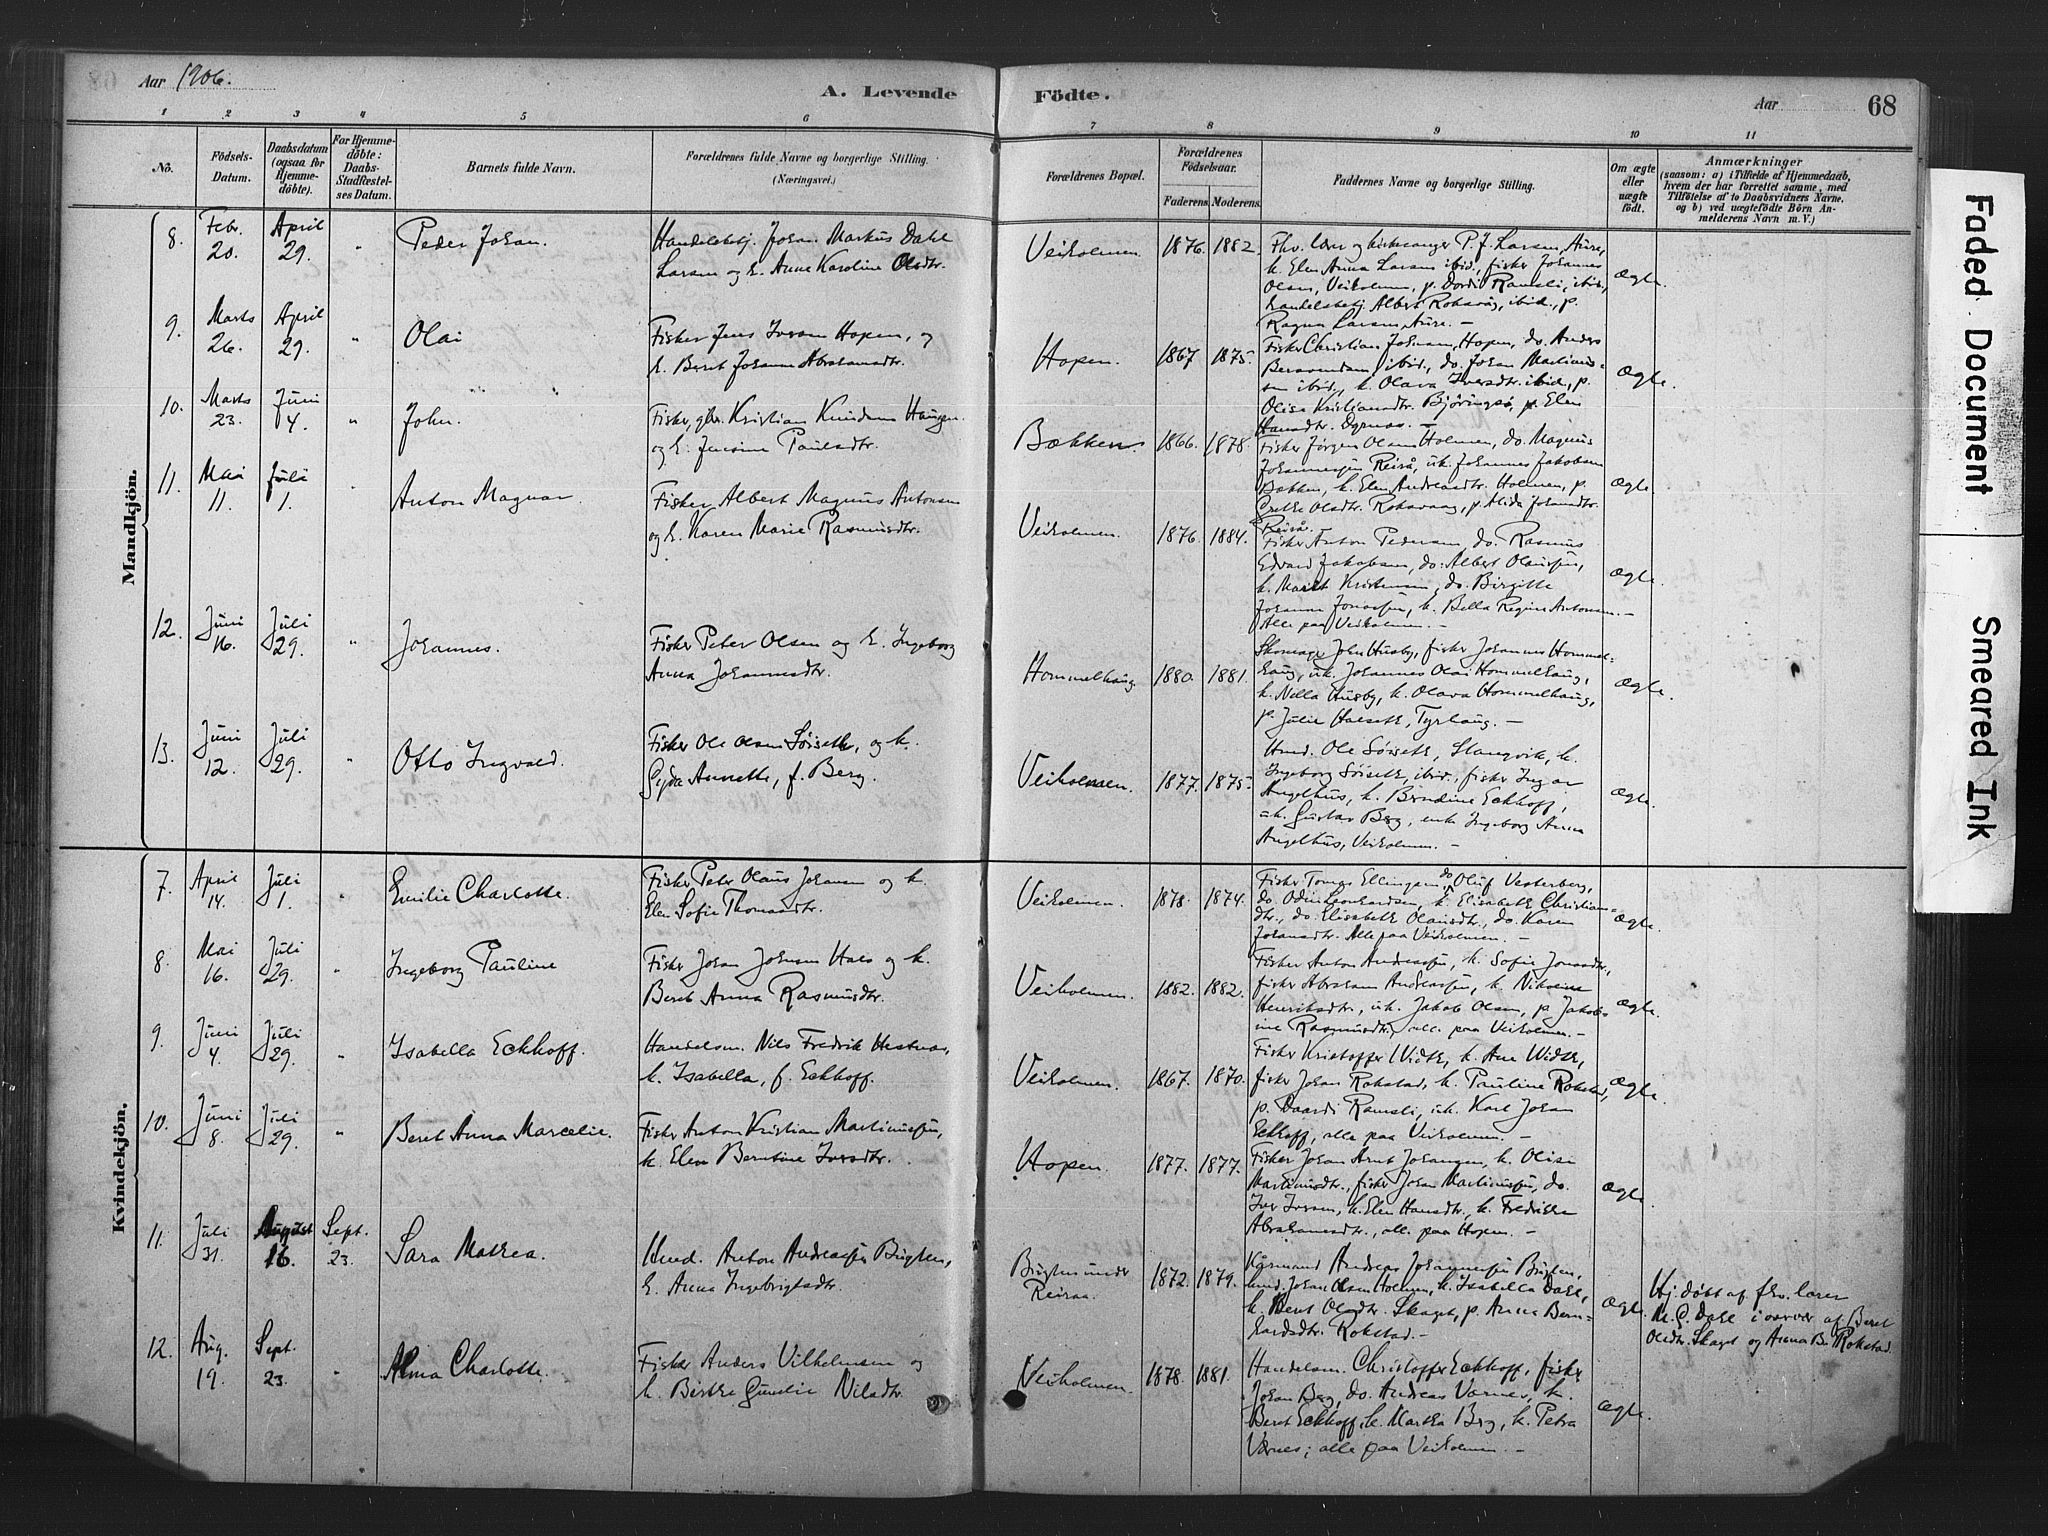 Aar 1906.
A. Levende Födte.
Aar
68
1 2 3 4 5 6 7 8 9 10 11
No.
Födsels-Datum.
Daabsdatum (ogsaa for Hjemme-döbte).
For Hjemme-döbte: Daabs-Stadfæstelses Datum.
Barnets fulde Navn.
Forældrenes fulde Navne og borgerlige Stilling.
(Næringsvei.)
Forældrenes Bopæl.
Forældrenes Födselsaar.
Faderens. Moderens.
Faddernes Navne og borgerlige Stilling.
Om ægte eller uægte födt.
Anmærkninger
(saasom: a) i Tilfælde af Hjemmedaab,
hvem der har forrettet samme, med
Tilföielse af to Daabsvidners Navne,
og b) ved uægtefödte Börn An-
melderens Navn m. V.)
Mandkjön.
8. Febr. 20. April 29. " Peder Johan.
Handelsbetj. Johan Markus Dahl
Larsen og h. Anna Karoline Olsdtr.
Veiholmen 1876. 1882.
Fhv. lærer og kirkesanger P. J. Larsen, Aure,
k. Elen Anna Larsen ibid., fisker Johannes
Olsen, Veiholmen, p. Dordi Ramsli, ibid.,
handelsbetj. Albert Roksvåg, ibid., p.
Ragna Larsen, Aure. —
Ægte.
9. Marts 26. April 29. " Olai
Fisker Jens Iversen Hopen, og
h. Beret Johanna Abrahamsdtr.
Hopen. 1867 1875.
Fisker Christian Johnsen, Hopen, do. Anders
ibid., do. Johan Martinus-
sen ibid., k. Olava Iversdtr. ibid., p.
Olise Kristiansdtr. Björingsö, p. Elen
Hansdtr. Dyrnes. —
Ægte.
10. Marts 23. Juni 4. " John.
Fisker, gbr. Kristian Knudsen Haugen
og h. Jensine Paulsdtr.
Bækken. 1866. 1878.
Fisker Jörgen Olsen Holmen, do. Magnus
Johannessen Reiså, uk. Johannes Jakobsen
Bækken, k. Elen Andreasdtr. Holmen, p.
Grethe Olsdtr. Roksvaag, p. Alida Johansdtr.
Reiså.
Ægte.
11. Mai 11. Juli 1. Anton Magnar.
Fisker Albert Magnus Antonsen
og h. Karen Marie Rasmusdtr.
Veiholmen. 1876. 1884.
Fisker Anton Pedersen, do. Rasmus
Edvard Jakobsen, do. Albert Olaussen,
k. Marit Kristensen, do. Birgitte
Johanna Jonassen, k. Bella Regine Antonsen. —
Alle paa Veiholmen. —
Ægte.
12. Juni 16. Juli 29. " Johannes.
Fisker Peter Olsen og h. Ingeborg
Anna Johannesdtr.
Hommelhaug. 1880. 1881.
Skomager John Husby, fisker Johannes Hommel-
haug, uk. Johannes Olai Hommelhaug,
k. Nella Husby, k. Olava Hommelhaug,
p. Julie Halseth, Tyrhaug. —
Ægte.
13. Juni 12. Juli 29. " Otto Ingvald.
Fisker Ole Olsen Söiseth, og k.
Gyda Annette, f. Berg.
Veiholmen. 1877. 1875.
Hmd. Ole Söiseth, Stangvik, k.
Ingeborg Söiseth, ibid., fisker Ingvar
Angelhus, k. Berndine Eckhoff,
uk. Gustav Berg, enke Ingeborg Anna
Angelhus, Veiholmen. —
Ægte.
Kvindekjön.
7. April 14. Juli 1. " Emilie Charlotte.
Fisker Peter Olaus Johansen og k.
Elen Sofie Thomasdtr.
Veiholmen. 1878. 1874.
Fisker Tomas Ellingsen, do Oluf Vesterberg,
do. Odin Leonhardsen, k. Elisabeth Christians-
dtr., do. Elisabeth Olausdtr., do. Karen
Johansdtr. Alle paa Veiholmen. —
Ægte.
8. Mai 16. Juli 29. " Ingeborg Pauline
Fisker Johan Johnsen Hals og k.
Beret Anna Rasmusdtr.
Veiholmen. 1882. 1882.
Fisker Anton Andreassen, k. Sofie Jonasdtr.,
fisker Abraham Andreassen, k. Nikoline
Henriksdtr., uk. Jakob Olsen, p. Jakob-
ine Rasmusdtr., alle paa Veiholmen. —
Ægte.
9. Juni 4. Juli 29. " Isabella Eckhoff.
Handelsm. Nils Fredrik Hestnes,
k. Isabella, f. Eckhoff.
Veiholmen. 1867. 1870.
Fisker Kristoffer Width, k. Ane Width,
fisker Johan Rokstad, k. Pauline Rokstad,
p. Daardi Ramsli, uk. Karl Johan
Eckhoff, alle paa Veiholmen. —
Ægte.
10. Juni 8. Juli 29. " Beret Anna Marcelie.
Fisker Anton Kristian Martinussen,
k. Elen Berntine Iversdtr.
Hopen. 1877. 1877.
Fisker Johan Arnt Johansen, k. Olise
Martinusdtr., fisker Johan Martinussen, do.
Iver Iversen, k. Elen Hansdtr., k. Fredrikke
Abrahamsdtr., alle paa Hopen. —
Ægte.
11. Juli 31. August 16. Sept. 23. Sara Mathea.
Hmd. Anton Andreassen Bugten,
h. Anna Ingebrigtsdtr.
Bugten under Reisaa. 1872. 1879.
Kårmand Andreas Johannessen Bugten,
hmd. Johan Olsen Holmen, k. Isabella Dahl,
k. Beret Olsdtr. Skaget, p. Anna Bern-
hardsdtr. Rokstad. —
Ægte.
Hj. döbt af fhv. lærer
M. C. Dahl i overvær af Beret
Olsdtr. Skaget og Anna B. Rokstad.
12. Aug. 19. Sept. 23. " Alma Charlotte.
Fisker Anders Vilhelmsen og
k. Birthe Gunelie Nilsdtr.
Veiholmen. 1878. 1881.
Handelsm. Christoffer Eckhoff, fisker
Johan Berg, do. Andreas Værnes, k.
Beret Eckhoff, k. Martha Berg, k. Petra
Værnes; alle paa Veiholmen. —
Ægte.
Faded Document
Smeared Ink